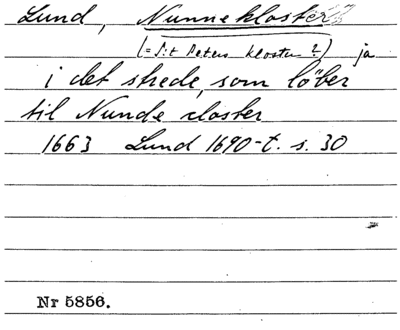 Lund, Nunnekloster
(= S:t Peters kloster?) ja
i det strede, som löber
til Nunde closter
1663 Lund 1690-t. s. 30
Nr 5856.